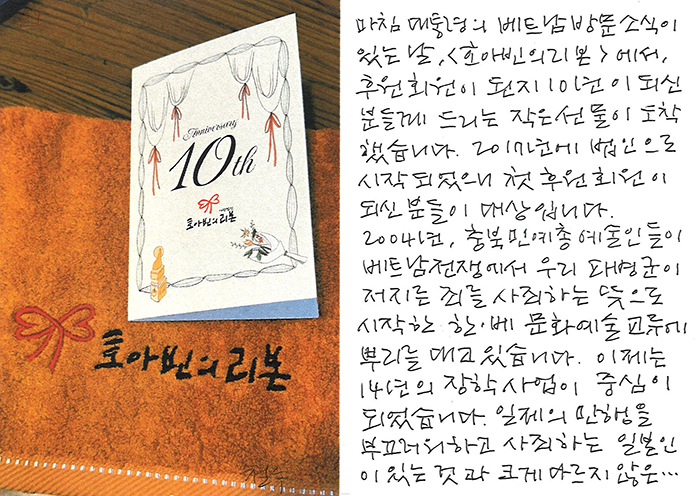 Anniversary
10th
호아빈의 리본
호아빈의 리본
마침 대통령의 베트남 방문 소식이
있는 날, <호아빈의 리본> 에서,
후원회원이 된지 10년이 되신
분들께 드리는 작은 선물이 도착
했습니다. 2017년에 법인으로
시작되었으니 첫 후원회원이
되신 분들이 대상입니다.
2004년, 충북민예총 예술인들이
베트남전쟁에서 우리 파병군이
저지른 죄를 사죄하는 뜻으로
시작한 한·베 문화예술교류에
뿌리를 대고 있습니다. 이제는
14년의 장학사업이 중심이
되었습니다. 일제의 만행을
부끄러워하고 사죄하는 일본인
이 있는 것과 크게 다르지 않은…